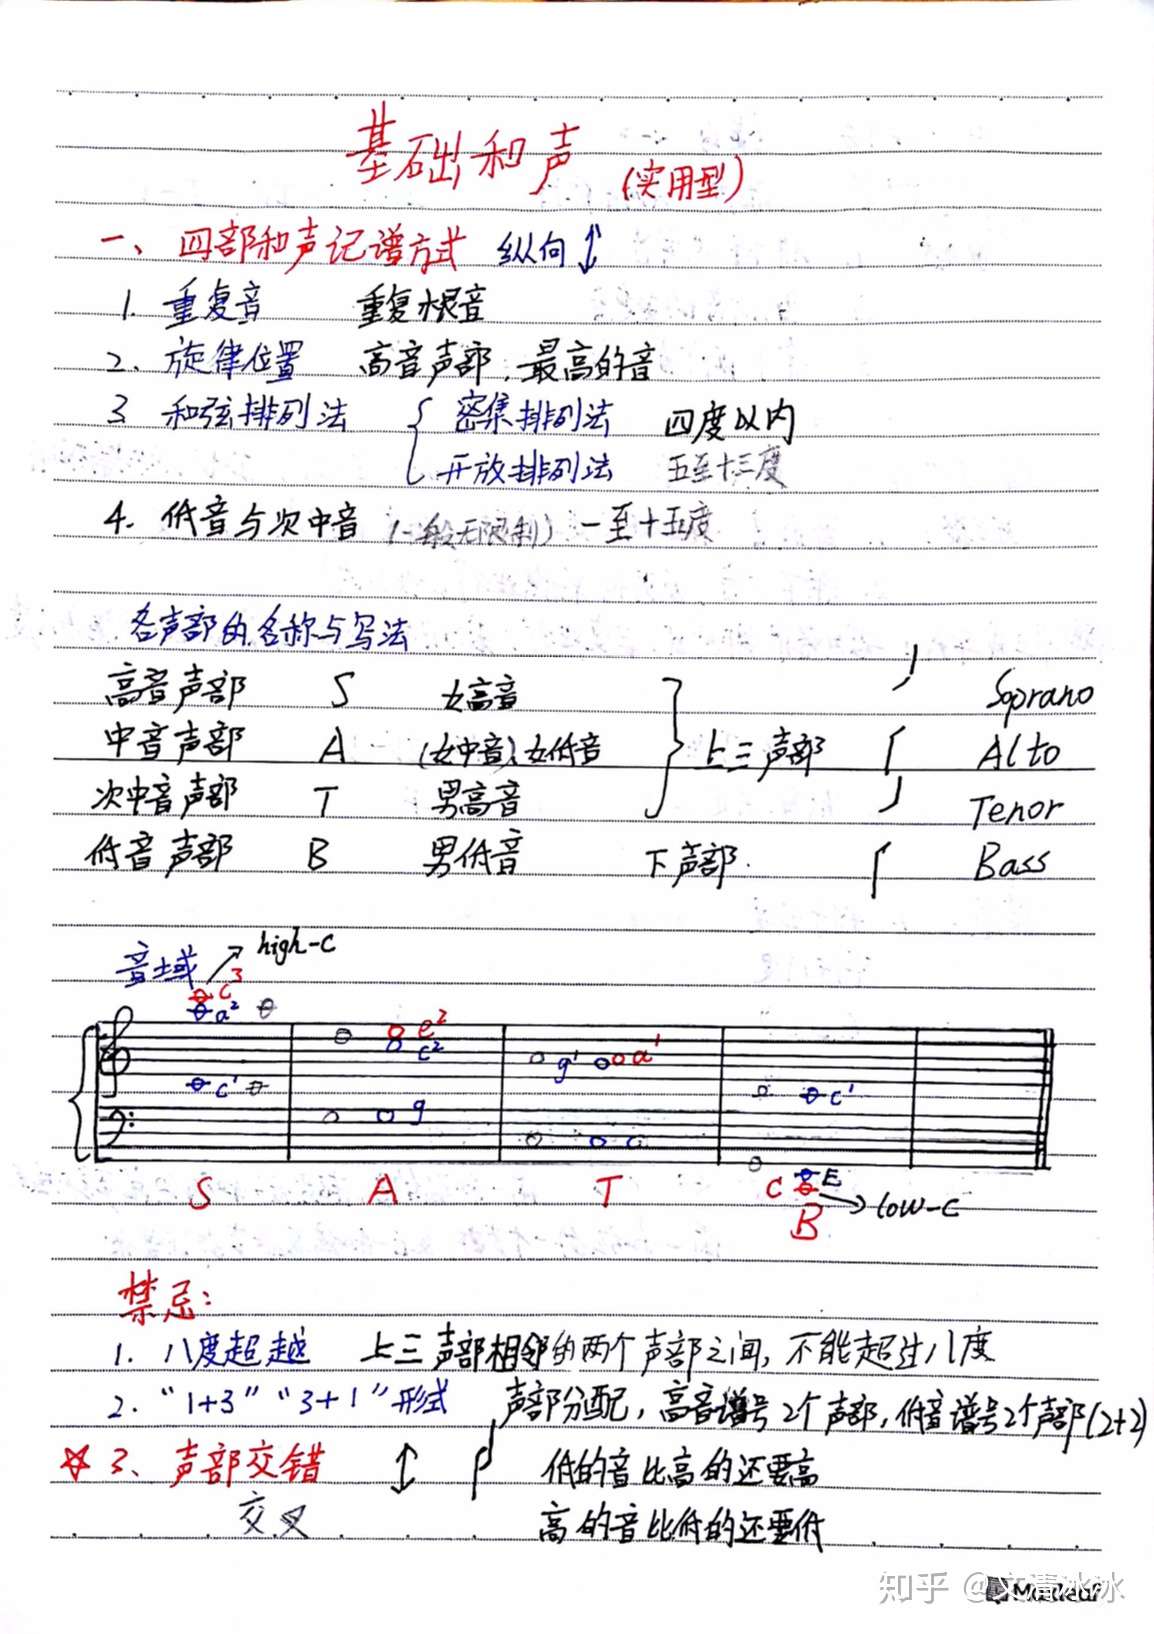 基础和声 (实用型)
一、四部和声记谱方式 纵向
1. 重复音 重复根音
2、旋律位置 高音声部，最高的音
3 和弦排列法 { 密集排列法 四度以内
开放排列法 五至十三度
4. 低音与次中音 (一般无限制) 一至十五度
各声部的名称与写法
高音声部 S 女高音 Soprano
中音声部 A (女中音)、女低音 上三声部 Alto
次中音声部 T 男高音 Tenor
低音声部 B 男低音 下声部. Bass
音域 high-c
c3
a2 e2
c2 g1 a1
c1 c1
g c
E
S A T C low-C
B
禁忌:
1. 八度超越 上三声部相邻的两个声部之间，不能超过八度
2. "1+3" "3+1"形式 声部分配，高音谱号2个声部，低音谱号2个声部(2+2)
☆ 3、声部交错 低的音比高的还要高
交叉 高的音比低的还要低
知乎 @文清冰冰